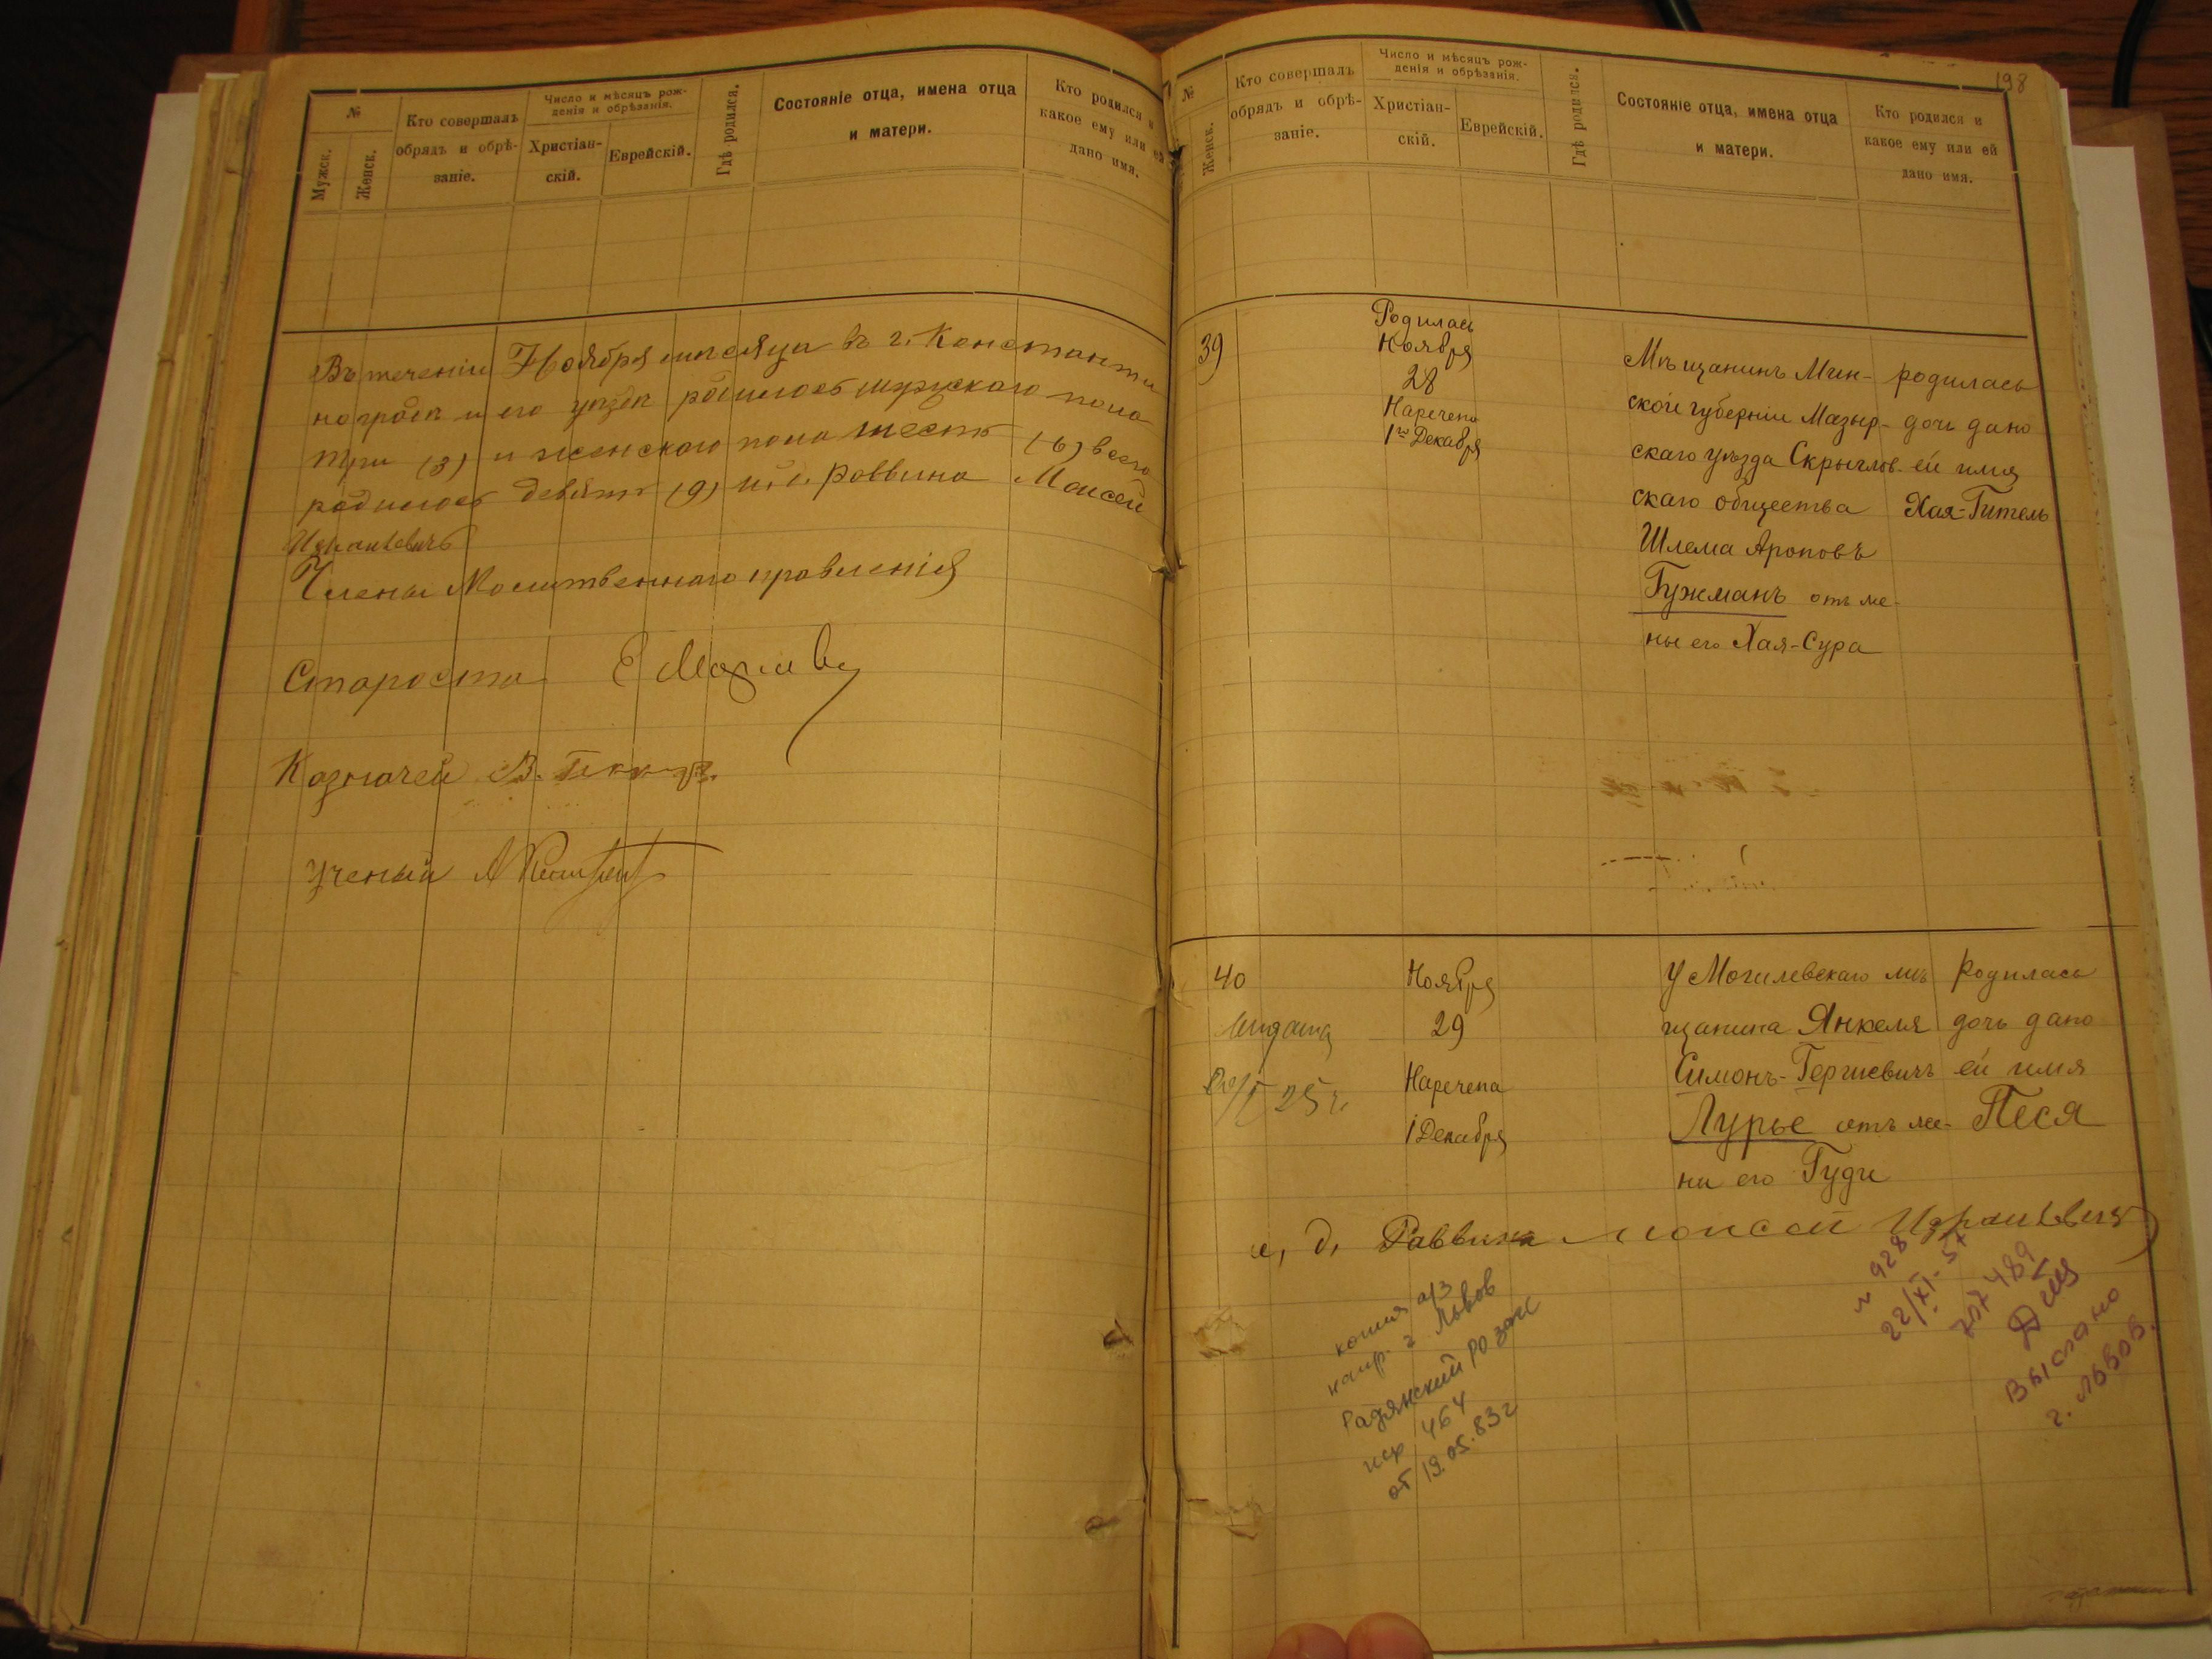 №
Мужск.
Женск.
Кто совершалъ
обрядъ и обрѣ-
заніе.
Число и мѣсяцъ рож-
денія и обрѣзанія.
Христіан-
скій.
Еврейскій.
Гдѣ родился.
Состояніе отца, имена отца
и матери.
Кто родился и
какое ему или ей
дано имя.
Въ теченіи Ноября мѣсяца въ г. Константи
ноградѣ и его уѣздѣ родилось мужскаго пола
три (3) и женскаго пола шесть (6) всего
родилось девять (9) И. д. Раввина Моисей
Израилевичъ
Члены Молитвеннаго правленія
Староста
Казначей В.
Ученый А
198
№
Женск.
Кто совершалъ
обрядъ и обрѣ-
заніе.
Число и мѣсяцъ рож-
денія и обрѣзанія.
Христіан-
скій.
Еврейскій.
Гдѣ родился.
Состояніе отца, имена отца
и матери.
Кто родился и
какое ему или ей
дано имя.
39
Родилась
Ноября
28
Наречена
1го Декабря
Мѣщанинъ Мин-
ской губерніи Мазыр-
скаго уѣзда Скрыглов-
скаго общества
Шлема Ароновъ
Гужманъ отъ же-
ны его Хая-Сура
родилась
дочь дано
ей имя
Хая-Гитель
40
Выдана
25 г.
Ноября
29
Наречена
1 Декабря
У Могилевскаго мѣ
щанина Янкеля
Симонъ-Гершевичъ
Лурье отъ же-
ни его Гуди
Родилась
дочь дано
ей имя
Песя
и, д, Раввина Моисей Израилевичъ
копия а/з
напр. г Львов
Радянский РО загс
исх 464
от 19.05.83г
№ 928
22/XI-57
489
Выслано
г. Львов.